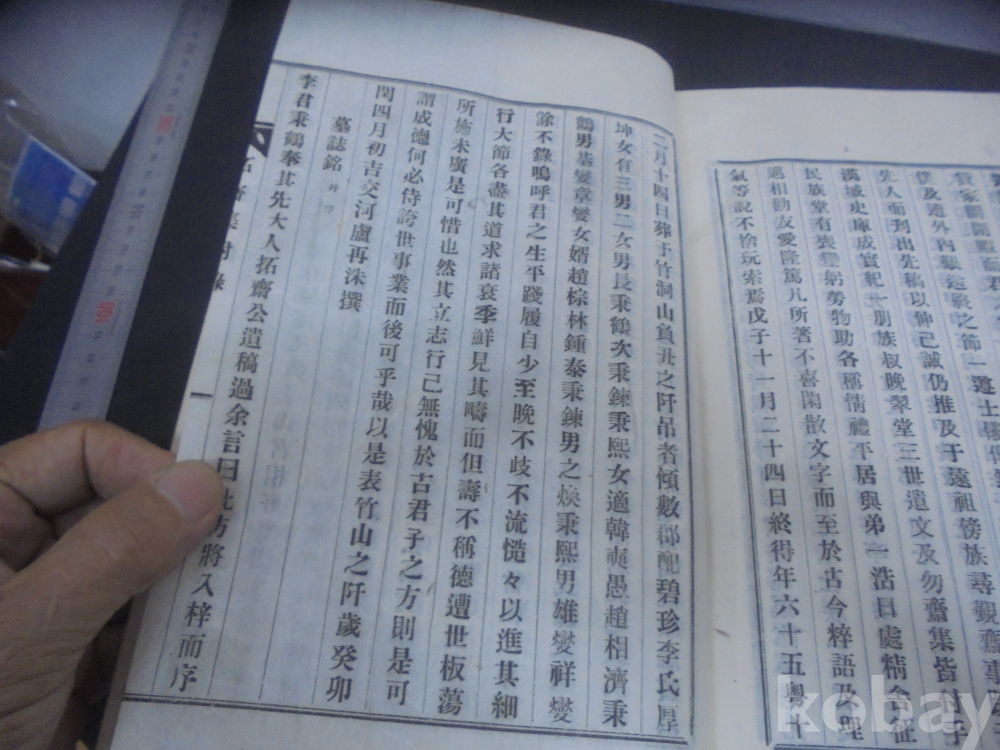 貲家聞
僕及遭外内艱送終之節一遵士
先人而刊出先稿以伸己誠仍推及于遠祖傍族尋覲齋事
漢城史庫成實紀一册族叔晩翠堂三世遺文及勿齋集皆付子
民族堂有喪變躬勞物助各稱情禮平居與弟一浩日處精舍征
邁相勸友愛隆篤凡所著不喜閑散文字而至於古今粹語及理
氣等說不捨玩索焉戊子十一月二十四日終得年六十五粤十
二月十四日葬于竹洞山負丑之阡吊者傾數郡配碧珍李氏厚
坤女有三男二女男長秉鶴次秉鍊秉熙女適韓
愚趙相濟秉
鶴男基燮章燮女婿趙棕林鍾泰秉鍊男之煥秉熙男雄燮祥燮
餘不錄嗚呼君之生平踐履自少至晩不歧不流慥々以進其細
行大節各盡其道求諸衰季鮮見其疇而但壽不稱德遭世板蕩
所施未廣是可惜也然其立志行己無愧於古君子之方則是可
謂成德何必侍誇世事業而後可乎哉以是表竹山之阡歲癸卯
閏四月初吉交河盧再洙撰
墓誌銘 幷序
李君秉鶴奉其先大人拓齋公遺稿過余言曰此方將入梓而序
拓齋集附錄
一
kobay